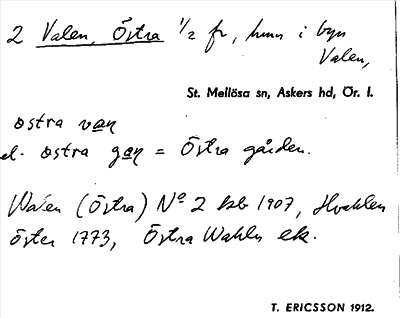 2 Valen, Östra ½ fr, hmn i byn
Valen,
St. Mellösa sn, Askers hd, Ör. l.
østra van
el. østra gan = Östra gården.
(Östra) Nº 2 kb 1907,
öster 1773, Östra Wahln ek.
T. ERICSSON 1912.